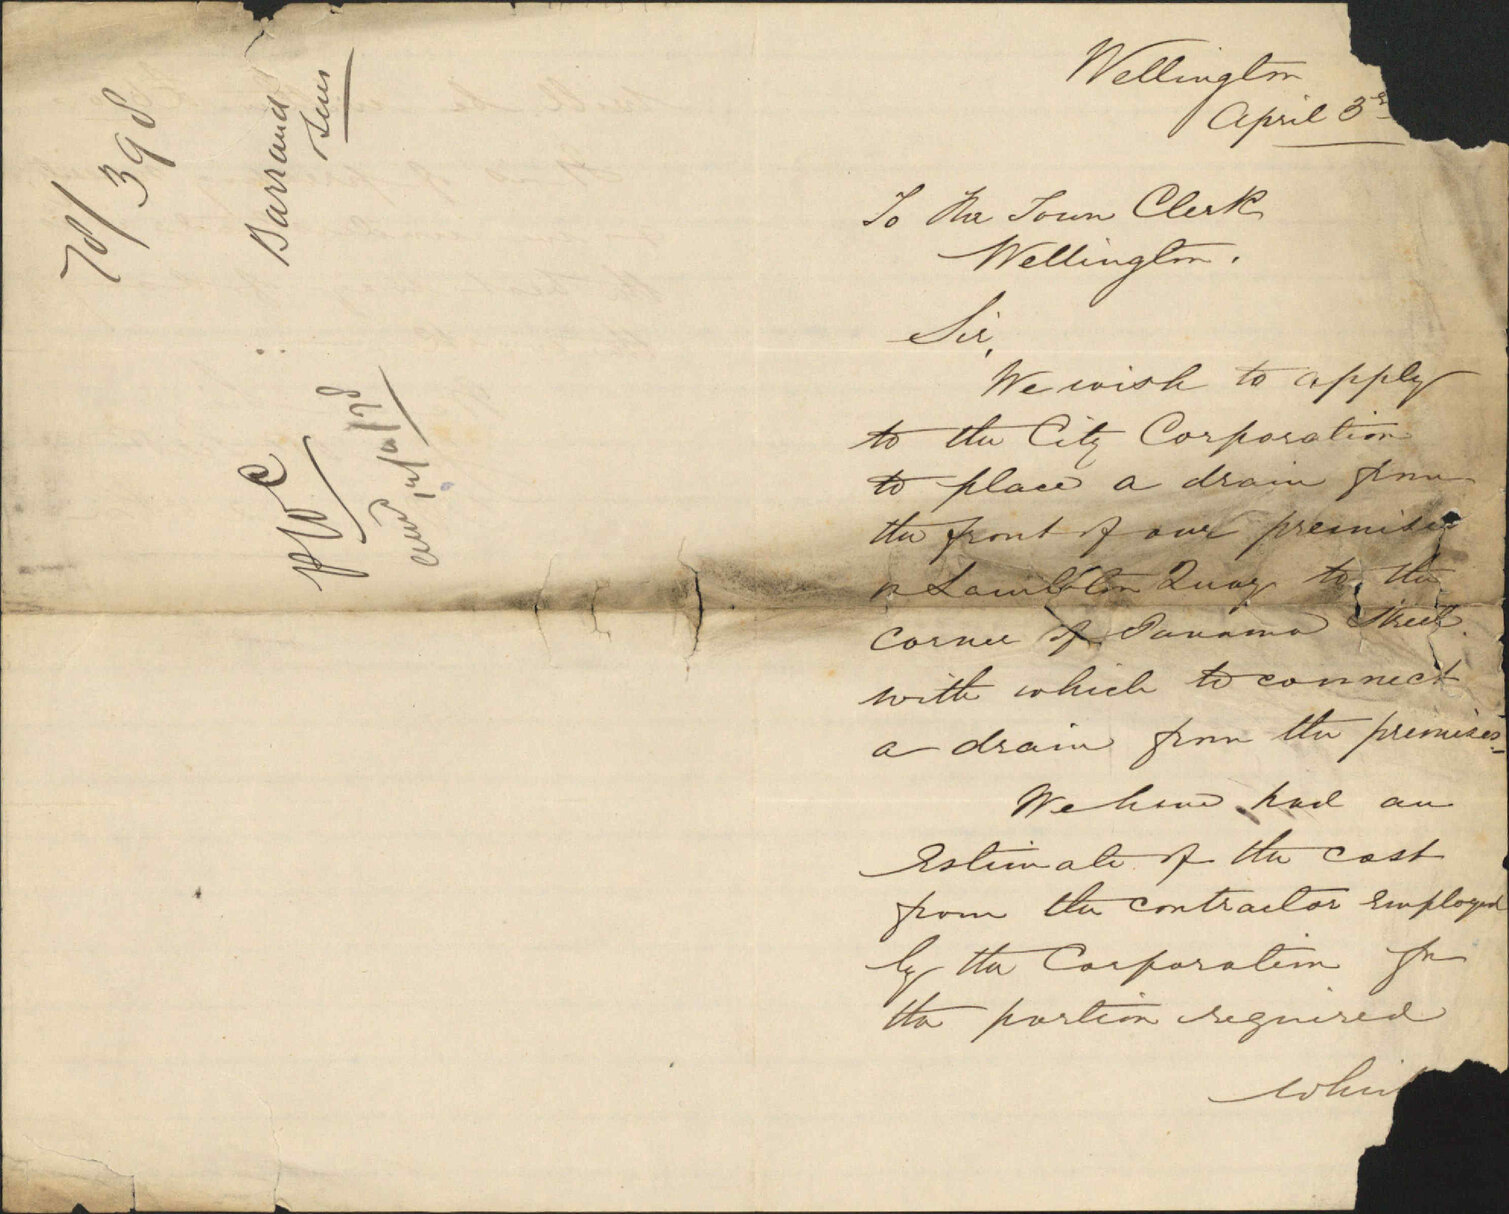 78/398
Barraud
& Son
PWC
Ansd 12/4/78
Wellington
April 3rd
To The Town Clerk
Wellington.
Sir,
We wish to apply
to the City Corporation
to place a drain from
the front of our premises
Lambton Quay to the
corner of Panama Street
with which to connect
a drain from the premises
We have had an
Estimate of the cost
from the contractor Employed
by the Corporation for
the portion required